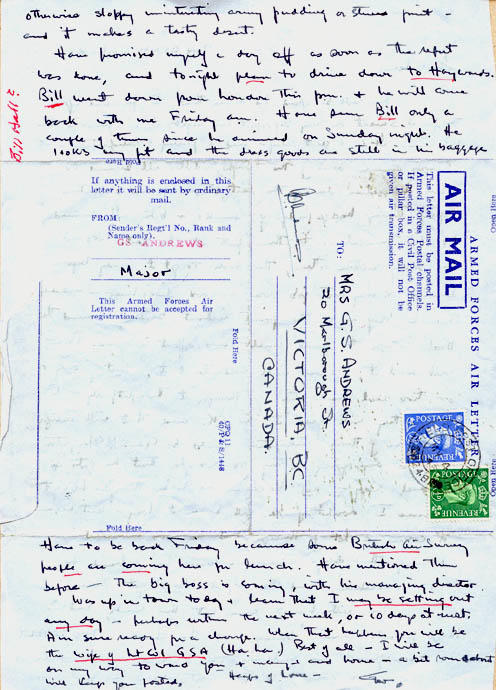 otherwise sloppy army pudding or
and it makes a tasty desert.
Have promised myself a day off as soon as the report
was done, and tonight plan to drive down to Haywards.
Bill went down from London this pm. & he will come
back with me Friday am. Have seen Bill only a
couple of times since he arrived on Sunday night. He
looks very fit and the dress goods are still in his baggage
Fold Here
If anything is enclosed in this
letter it will be sent by ordinary
mail.
FROM:
(Sender's Regt'l No., Rank and
Name only).
GS ANDREWS
Major
This Armed Forces Air
Letter cannot be accepted for
registration.
Fold Here
Fold Here
AIR MAIL
ARMED FORCES AIR LETTER
This letter must be posted in
Armed Forces Postal channels.
If posted in a Civil Post Office
or pillar box, it will not be
given air transmission.
TO:
MRS G. S. ANDREWS
20 Marlborough St.
VICTORIA, BC
CANADA.
POSTAGE
REVENUE
POSTAGE
REVENUE
Open Here
Have to be back Friday because some British Air Survey
people are coming here for lunch. Have mentioned them
before — The big boss is coming, with his managing director.
Was up in town today & learn that I may be setting out
any day — perhaps within the next week, or 10 days at most.
Am sure ready for a change. When that happens you will be
the wife of Lt Col GSA (Ha, ha.) Best of all — I will be
on my way to ward you & and home — a bit roundabout
will keep you posted. Heaps of love —